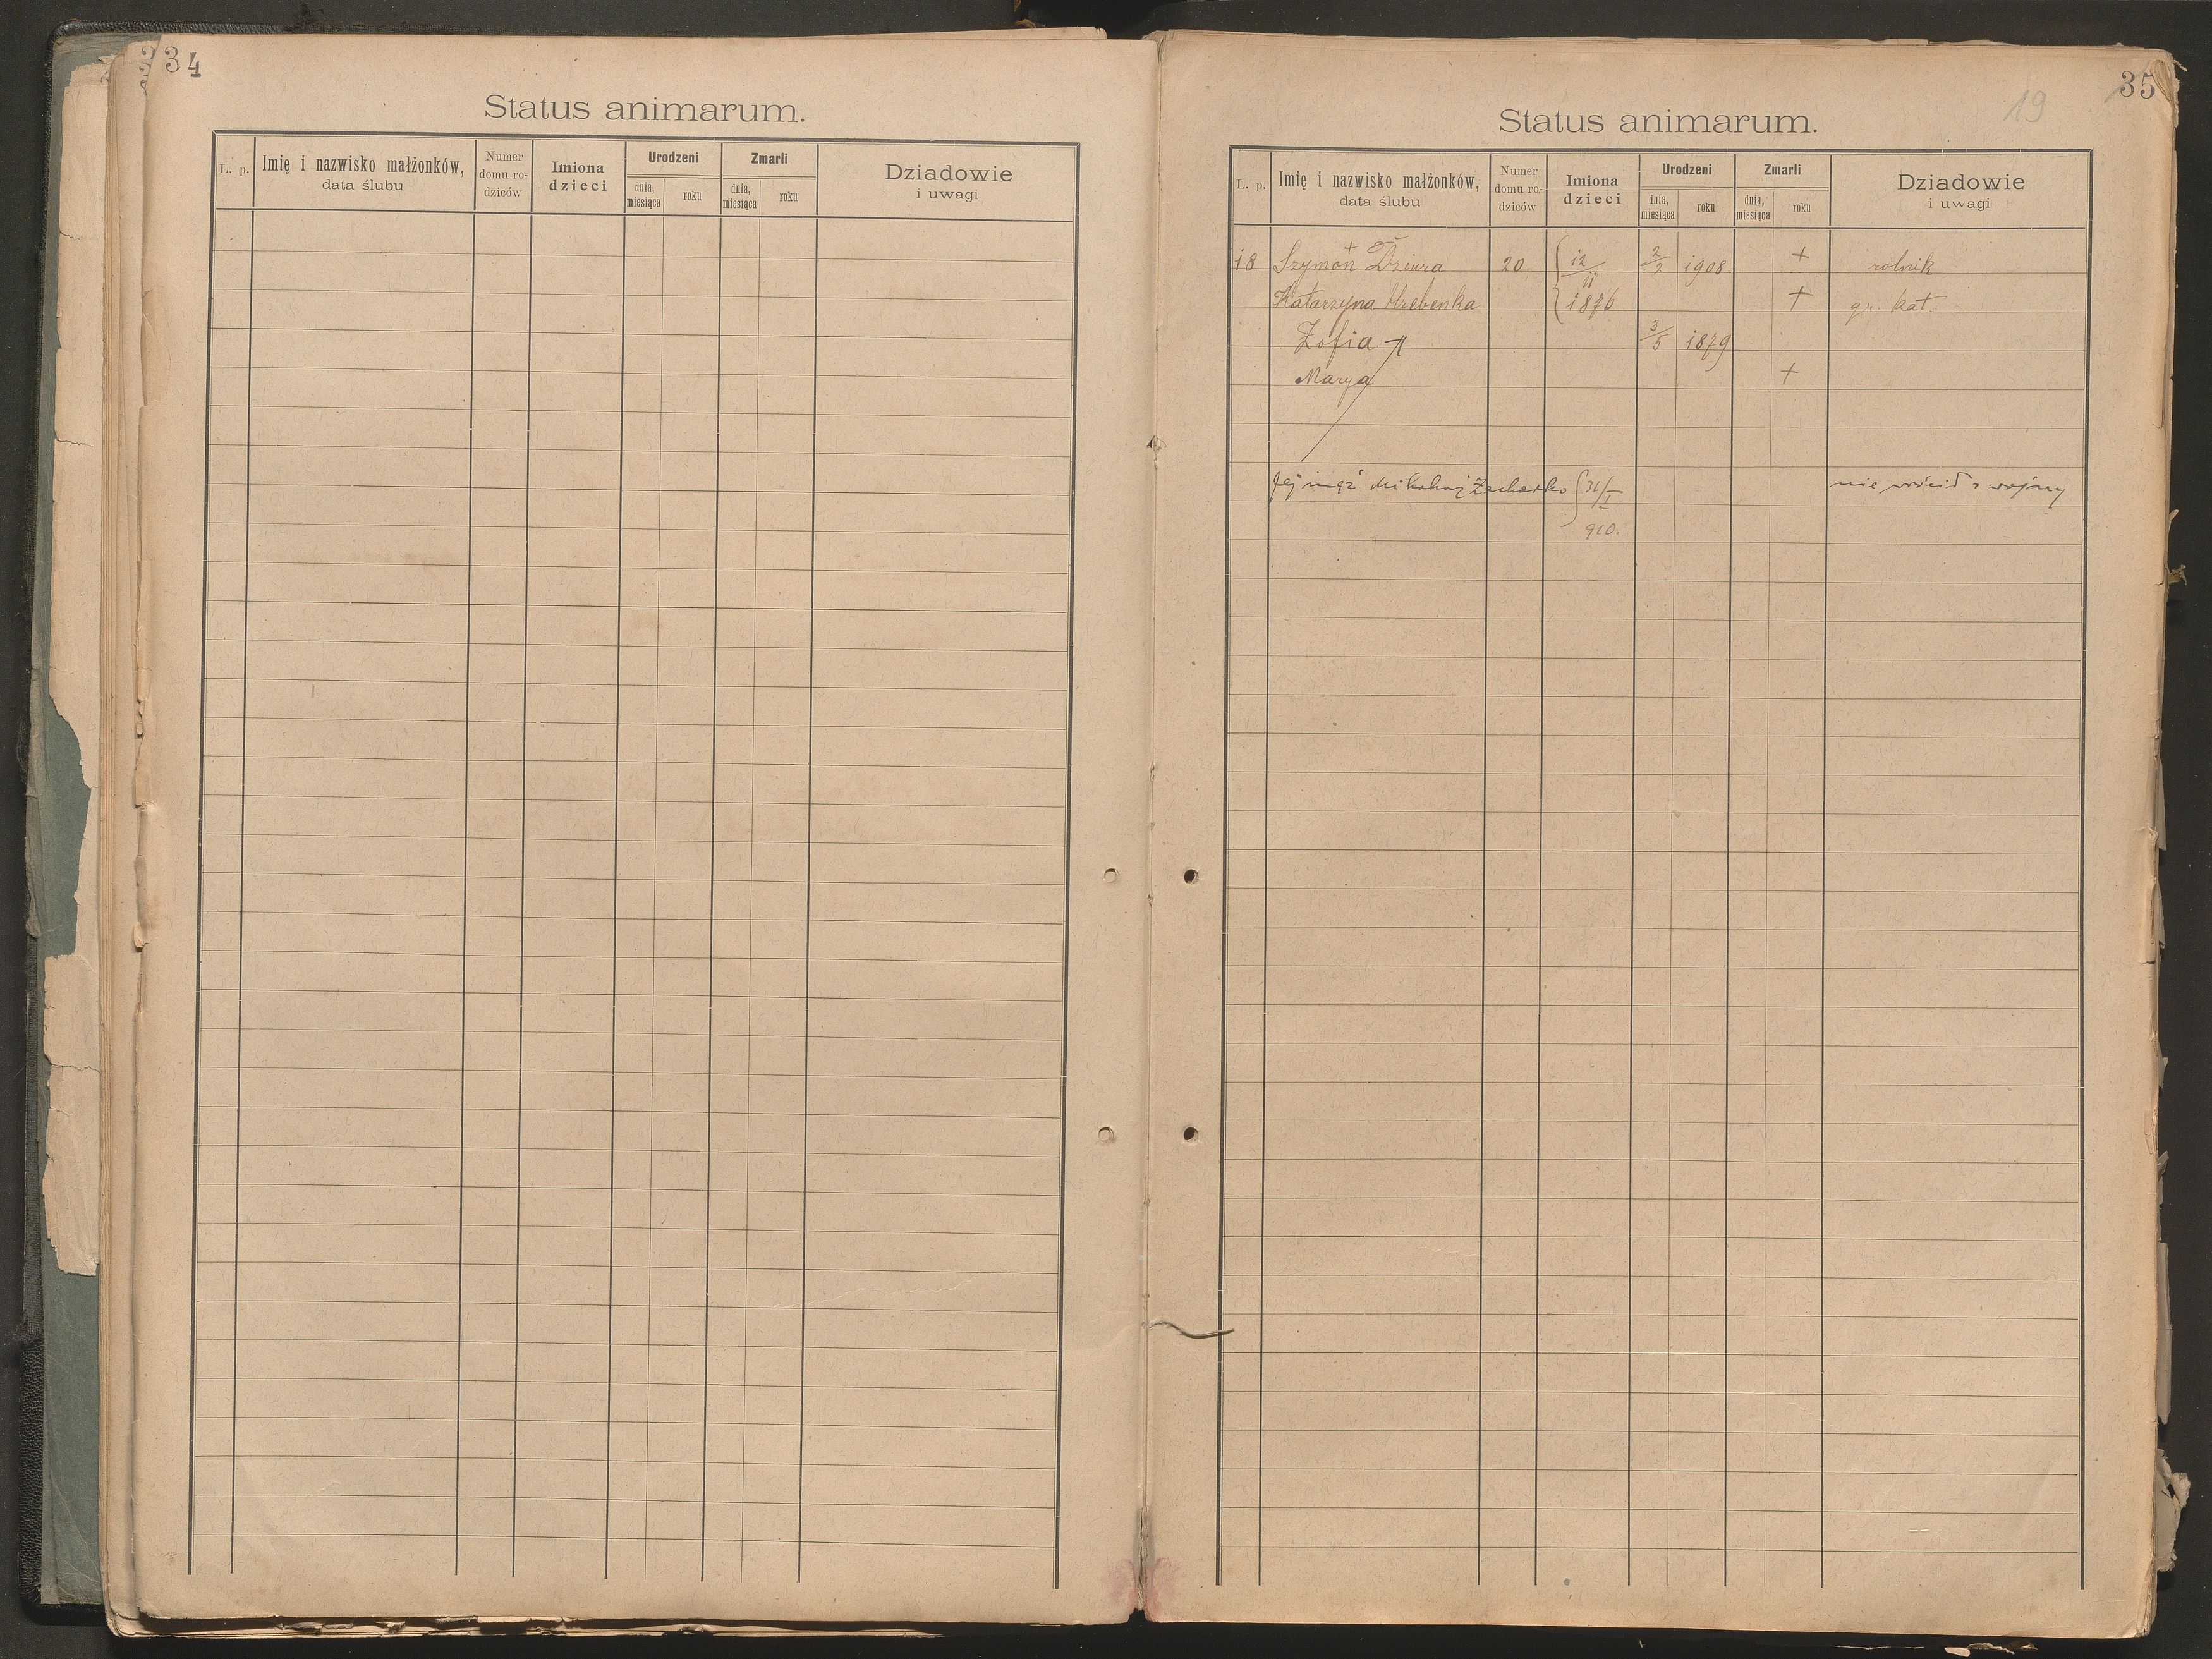 34
Status animarum.
L. p.
Imię i nazwisko małżonków,
data ślubu
Numer
domu ro-
dziców
Imiona
dzieci
Urodzeni
dnia,
miesiąca
roku
Zmarli
dnia,
miesiąca
roku
Dziadowie
i uwagi
35
19
Status animarum.
L. p.
Imię i nazwisko małżonków,
data ślubu
Numer
domu ro-
dziców
Imiona
dzieci
Urodzeni
dnia,
miesiąca
roku
Zmarli
dnia,
miesiąca
roku
Dziadowie
i uwagi
18 Szymon Dziura 20 12/II 2/2 1908 + rolnik
Katarzyna 1876 + gr. kat.
Zofia 3/5 1879
Marya +
Jej mąż Mikołaj 31/I nie wrócił z wojny
910.